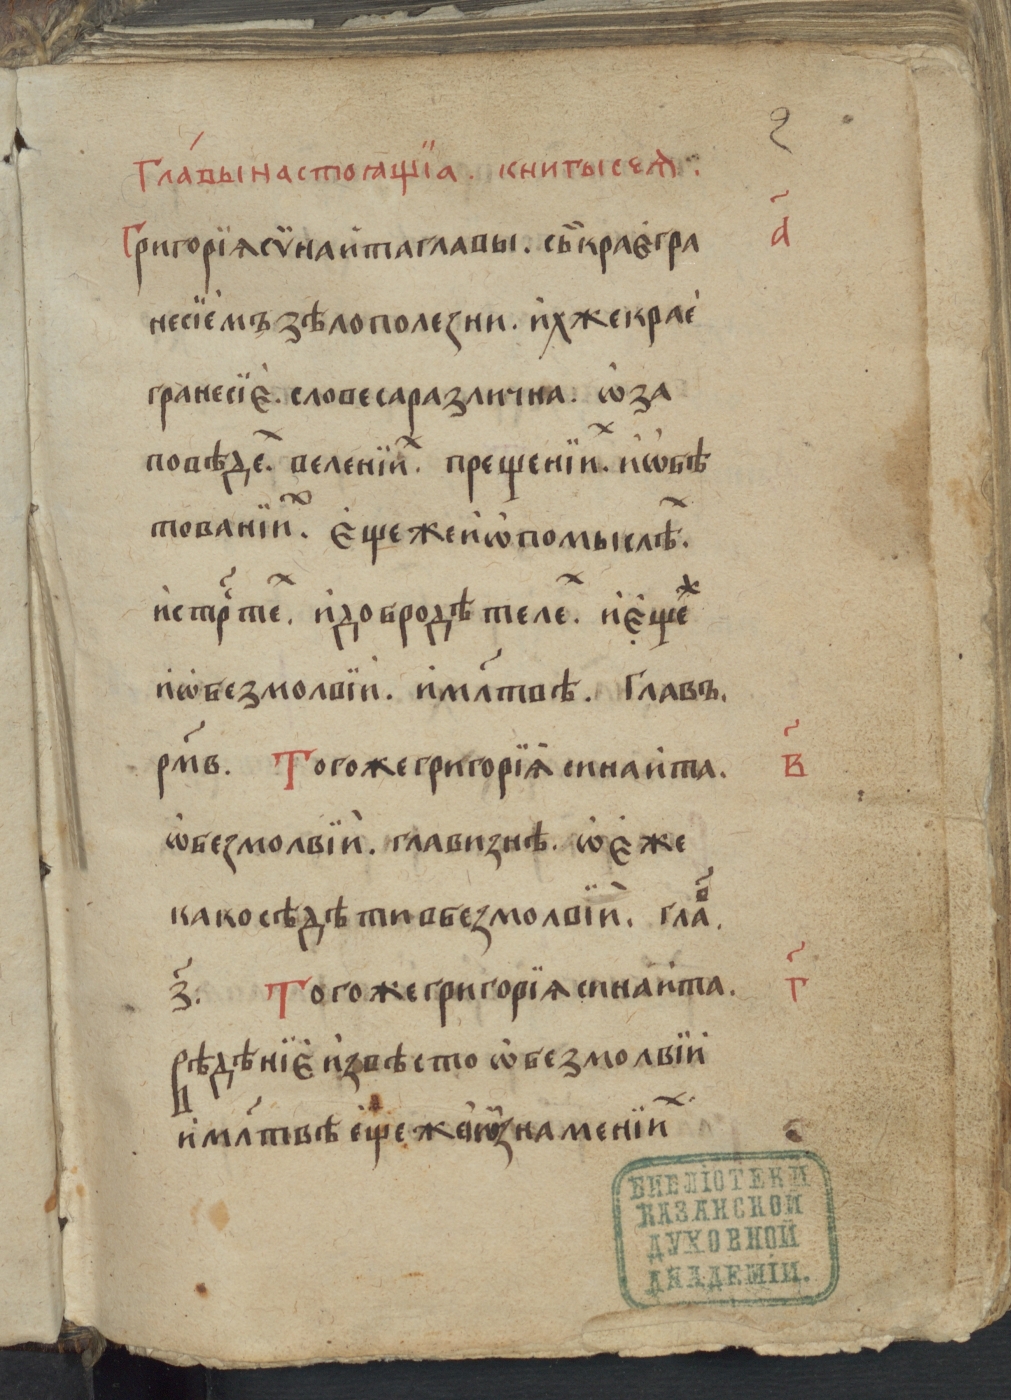 2
Гла́вы настоѧщїа. книгы сеѧ:
Григорїѧ сѷнаита главы. съ краегра а҃
несїемъ зѣло полезни. ихже крае
гранесїе. словеса различна. ѡ за
повѣдеⷯ. веленїиⷯ. прещенїиⷯ. и ѡбѣ
тованїиⷯ. еще же и ѡ помыслѣⷯ.
и стрⷭ҇теⷯ. и добродѣтелеⷯ. и ещеⷤ
и ѡ безмолвїи. и мл҃твѣ. Главъ.
рм҃в. Того же григорїѧ синаита. в҃
ѡ безмолвїи. главизнѣ. ѡ еже
како сѣдѣти в безмолвїи. глаⷡ҇.
з҃. Того же григорїѧ синаита. г҃
вѣдѣнїе извѣсто ѡ безмолвїи
и мл҃твѣ еще же и ѡ знаменїиⷯ
БИБЛІОТЕКИ
КАЗАНСКОЙ
ДУХОВНОЙ
АКАДЕМІИ.